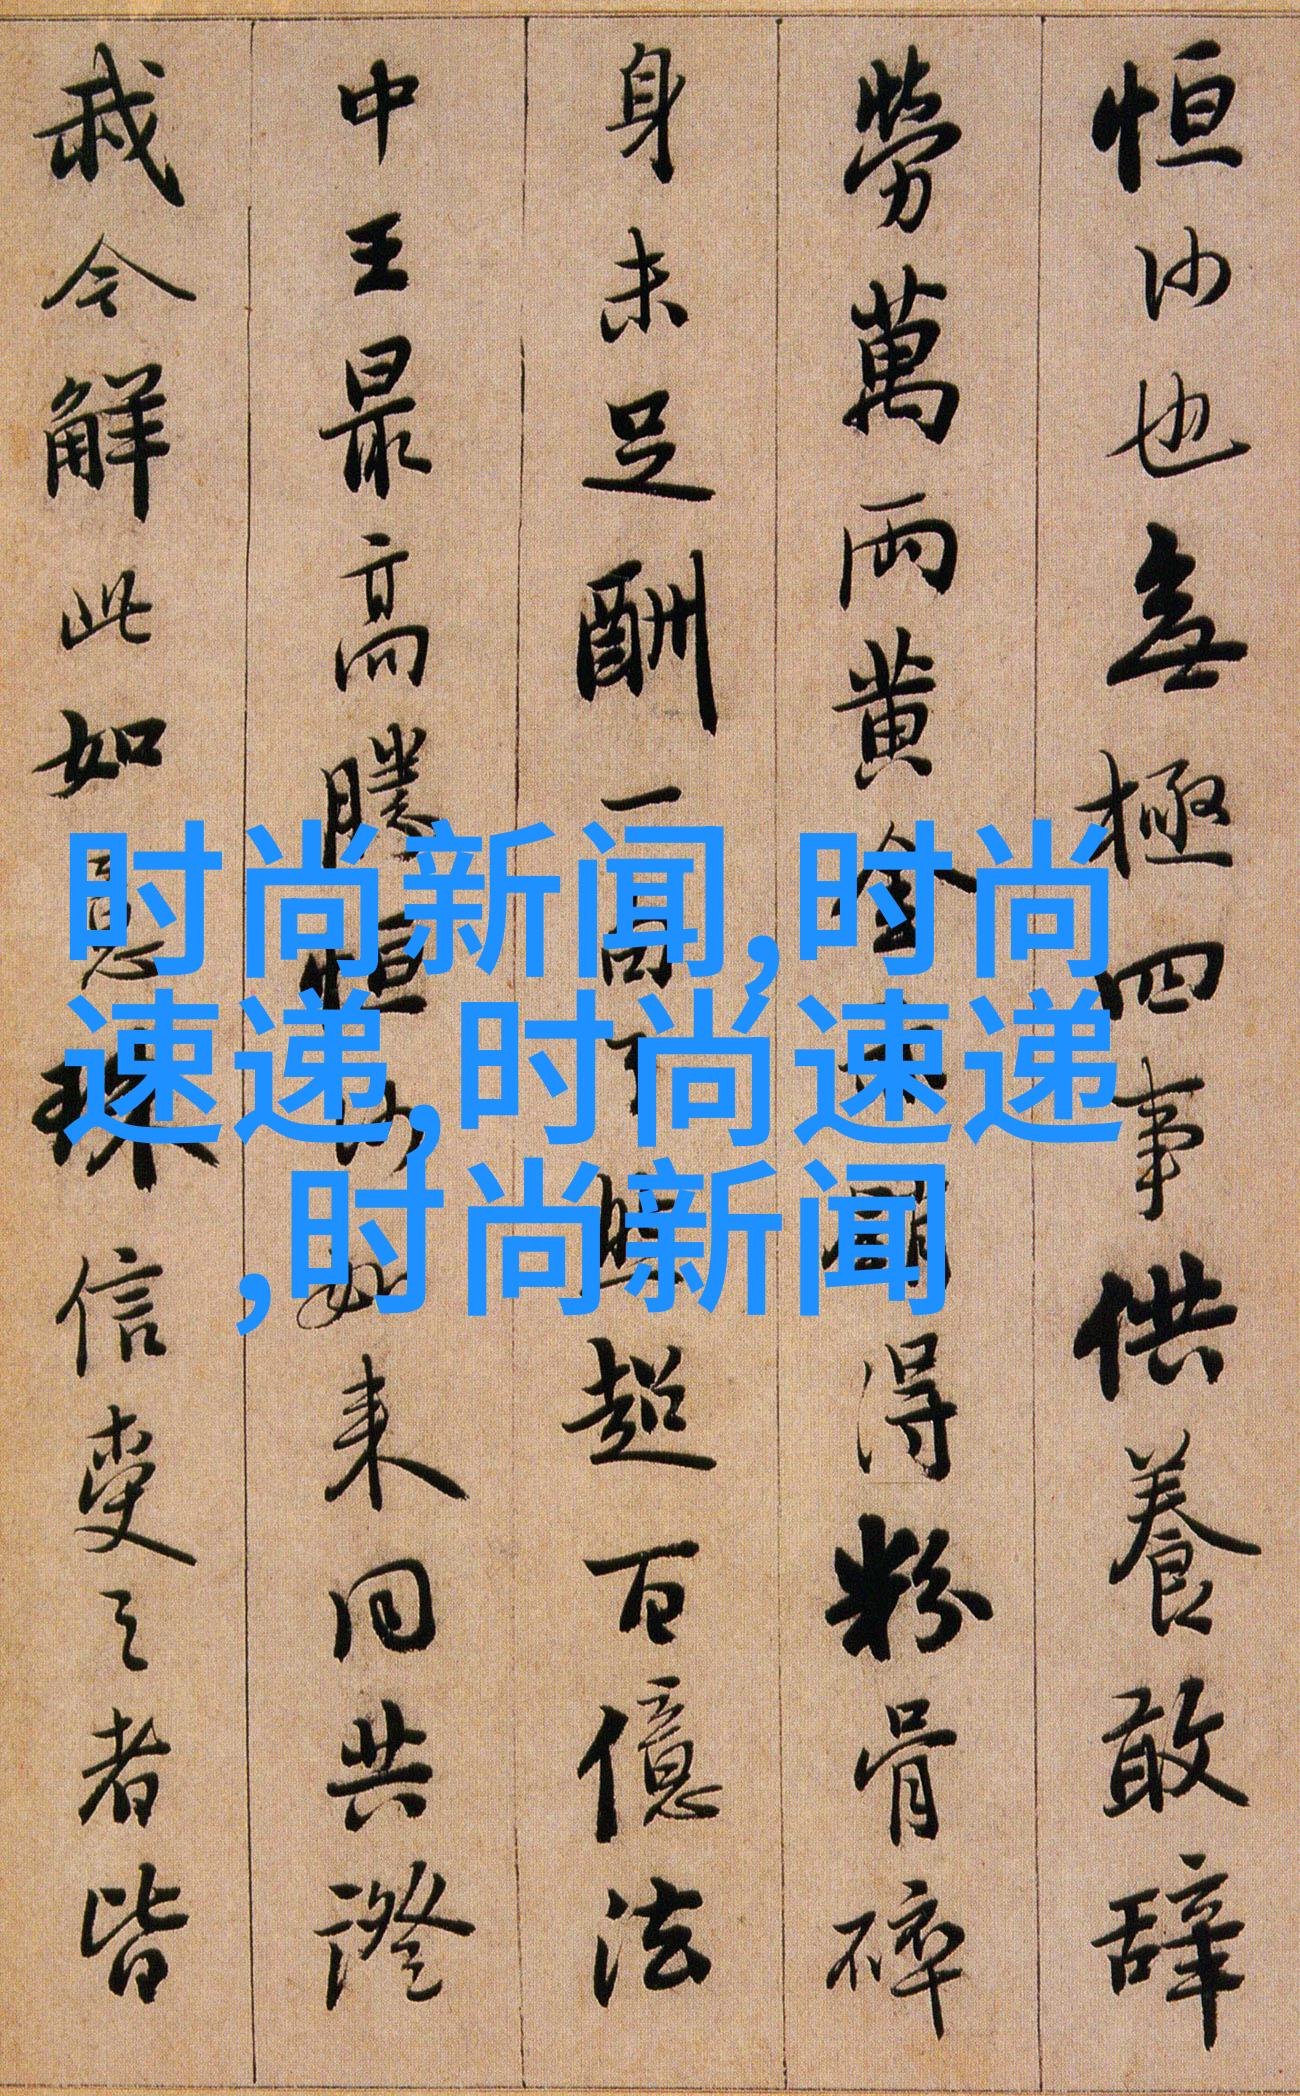 恒沙也無極四事供養敢辞
勞萬兩黄金銷得粉骨碎
身未足酬一句了超百億法
中王最高勝恒沙如来同共證
我今解此如意珠信受之者皆
时尚新闻,时尚
速递,时尚速递
,时尚新闻